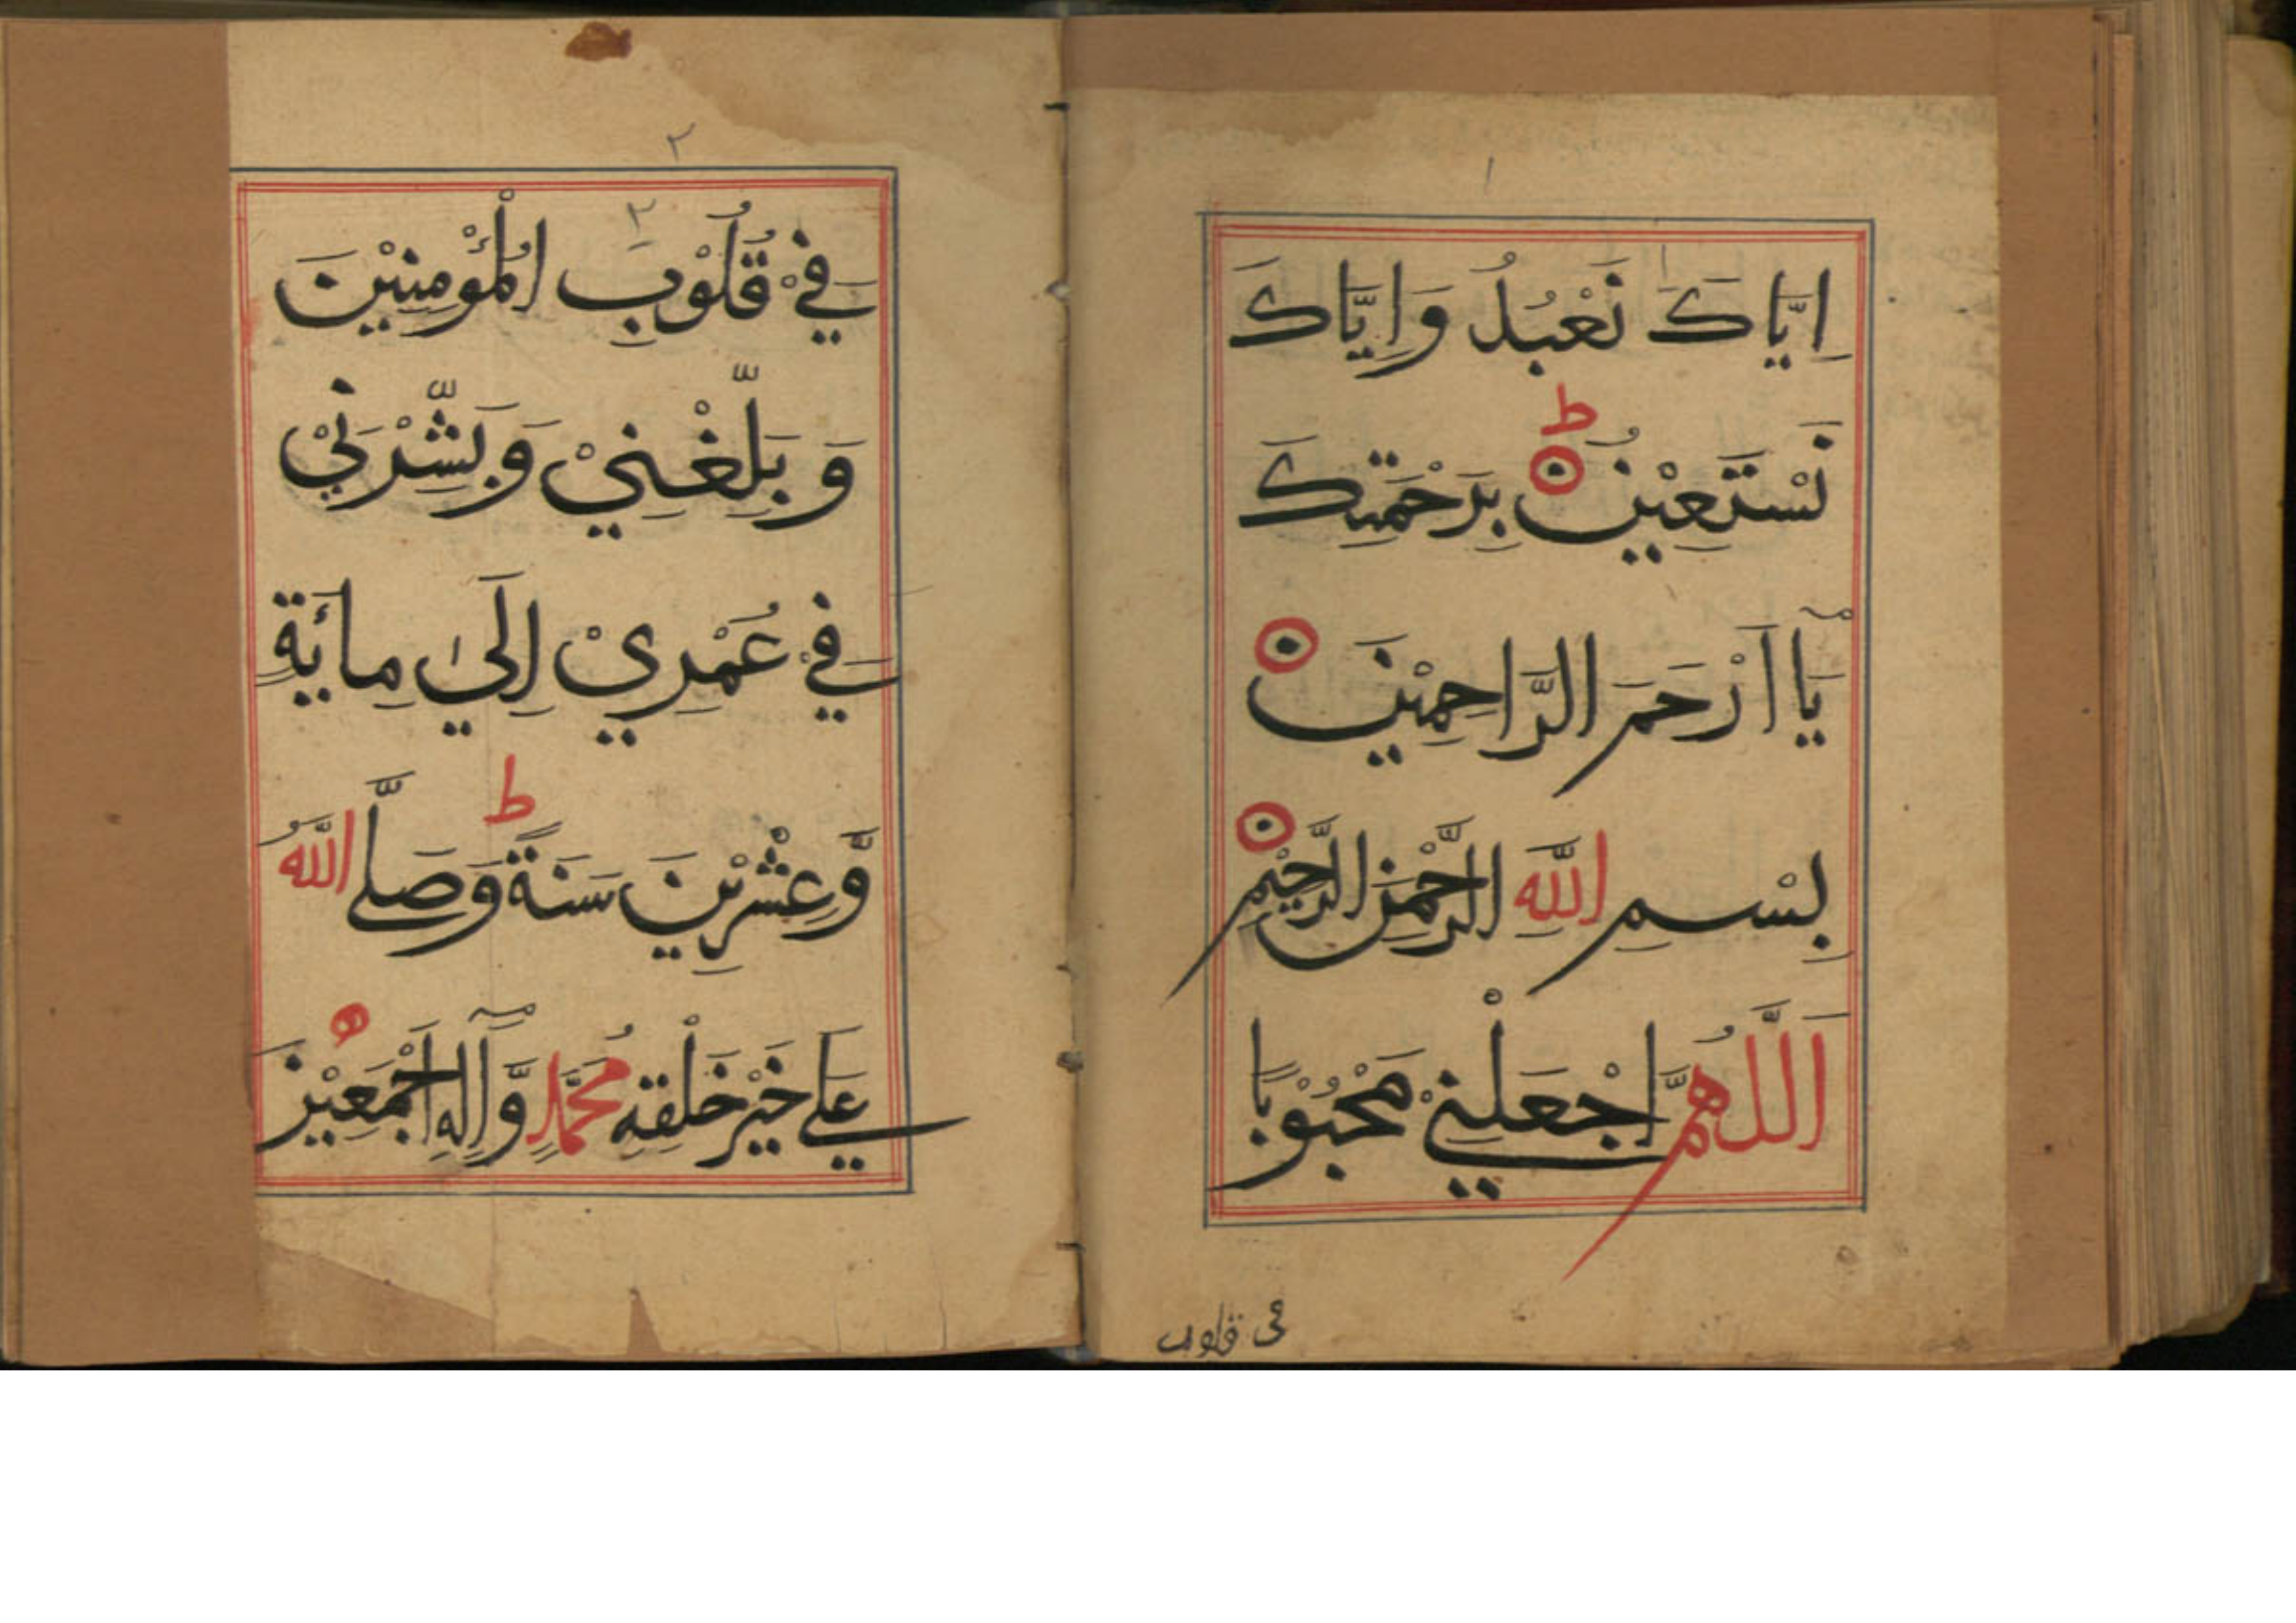 ١
اِيَّاكَ نَعْبُدُ وَاِيَّاكَ
نَسْتَعِيْنُ ط بِرَحْمَتِكَ
يَآ اَرْحَمَ الرَّاحِمِيْنَ
بِسْمِ اللّٰهِ الرَّحْمٰنِ الرَّحِيْمِ
اَللّٰهُمَّ اجْعَلْنِيْ مَحْبُوْبًا
فی قلوب
٢
٢
فِيْ قُلُوْبِ الْمُؤْمِنِيْنَ
وَ بَلِّغْنِيْ وَبَشِّرْنِيْ
فِيْ عُمْرِيْ اِلَىٰ مِائَةٍ
وَّعِشْرِيْنَ سَنَةً ط وَصَلَّے اللّٰهُ
عَلٰے خَيْرِ خَلْقِهٖ مُحَمَّدٍ وَّاٰلِهٖ اَجْمَعِيْنَ ه